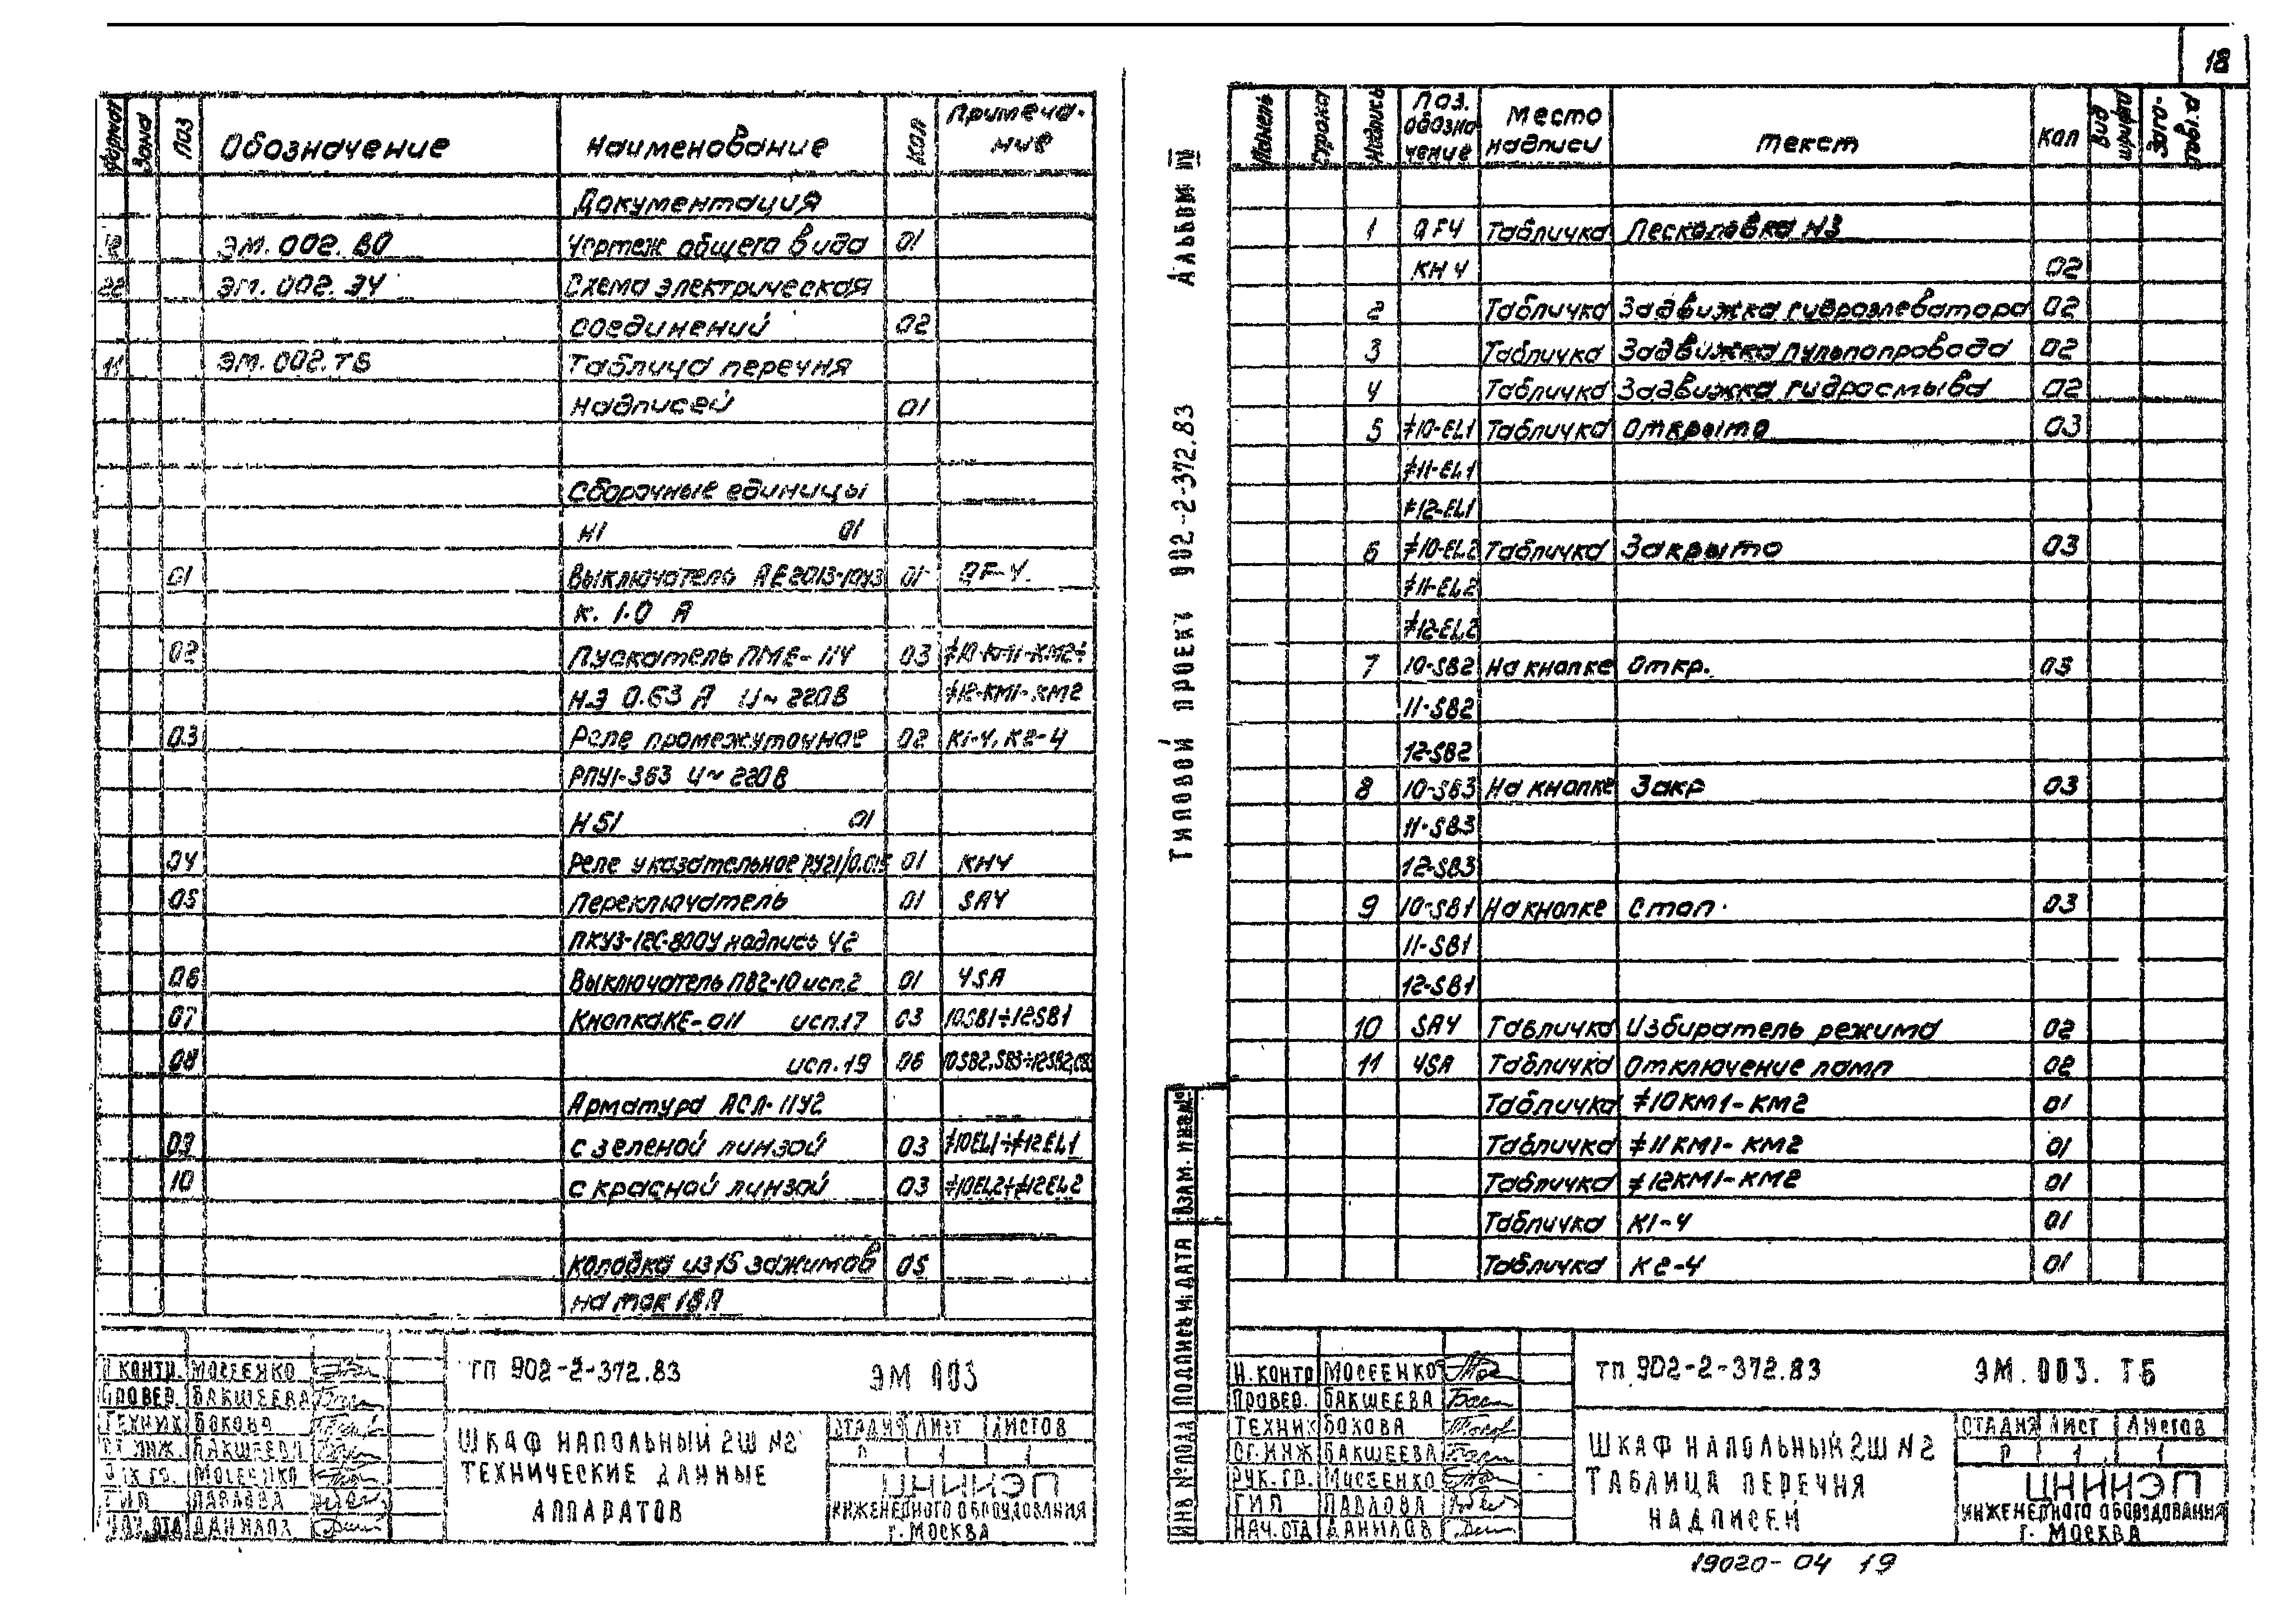 18
Формат Зона Поз Обозначение Наименование Кол Примеча-
ние
Документация
12 ЭМ. 002. ВО Чертеж общего вида 01
22 ЭМ. 002. Э4 Схема электрическая
соединений 02
11 ЭМ. 002. ТБ Таблица перечня
надписей 01
Сборочные единицы
Н1 01
01 Выключатель АЕ2013-10У3 01 QF-4.
к. 1.0 А
02 Пускатель ПМЕ-114 03 ≠10-КМ1-КМ2÷
Н.Э 0.63 А U~220В ≠12-КМ1-КМ2
03 Реле промежуточное 02 К1-4, К2-4
РПУ1-363 U~220В
Н51 01
04 Реле указательное РУ21/0.015 01 КН4
05 Переключатель 01 SA4
ПКУ3-12С-8004 надпись 42
06 Выключатель ПВ2-10 исп.2 01 4SA
07 Кнопка КЕ-011 исп.17 03 10SB1÷12SB1
08 исп.19 06 10SB2,SB3÷12SB2,SB3
Арматура АСЛ-11У2
09 с зеленой линзой 03 ≠10EL1÷≠12EL1
10 с красной линзой 03 ≠10EL2÷≠12EL2
Колодка из 15 зажимов 05
на ток 18А
Н.КОНТР. МОСЕЕНКО
ПРОВЕР. БАКШЕЕВА
ТЕХНИК БОКОВА
СТ.ИНЖ. БАКШЕЕВА
РУК.ГР. МОСЕЕНКО
ГИП ПАВЛОВА
НАЧ.ОТД ДАНИЛОВ
ТП 902-2-372.83 ЭМ 003
ШКАФ НАПОЛЬНЫЙ 2Ш №2
ТЕХНИЧЕСКИЕ ДАННЫЕ
АППАРАТОВ
СТАДИЯ ЛИСТ ЛИСТОВ
Р 1 1
ЦНИИЭП
ИНЖЕНЕРНОГО ОБОРУДОВАНИЯ
Г. МОСКВА
ТИПОВОЙ ПРОЕКТ 902-2-372.83 АЛЬБОМ IV
Панель Строка Надпись Поз.
обозна-
чение Место
надписи Текст Кол Вид
шрифта Заго-
тов.
1 QF4 Табличка Песколовка №3
КН4 02
2 Табличка Задвижка гидроэлеватора 02
3 Табличка Задвижка пульпопровода 02
4 Табличка Задвижка гидросмыва 02
5 ≠10-EL1 Табличка Открыто 03
≠11-EL1
≠12-EL1
6 ≠10-EL2 Табличка Закрыто 03
≠11-EL2
≠12-EL2
7 10-SB2 На кнопке Откр. 03
11-SB2
12-SB2
8 10-SB3 На кнопке Закр 03
11-SB3
12-SB3
9 10-SB1 На кнопке Стоп. 03
11-SB1
12-SB1
10 SA4 Табличка Избиратель режима 02
11 4SA Табличка Отключение ламп 02
Табличка ≠10КМ1-КМ2 01
Табличка ≠11КМ1-КМ2 01
Табличка ≠12КМ1-КМ2 01
Табличка К1-4 01
Табличка К2-4 01
ИНВ №ПОДЛ ПОДПИСЬ И ДАТА ВЗАМ. ИНВ.№
Н.КОНТР МОСЕЕНКО
ПРОВЕР. БАКШЕЕВА
ТЕХНИК БОКОВА
СТ.ИНЖ БАКШЕЕВА
РУК.ГР. МОСЕЕНКО
ГИП ПАВЛОВА
НАЧ.ОТД ДАНИЛОВ
ТП 902-2-372.83 ЭМ. 003. ТБ
ШКАФ НАПОЛЬНЫЙ 2Ш №2
ТАБЛИЦА ПЕРЕЧНЯ
НАДПИСЕЙ
СТАДИЯ ЛИСТ ЛИСТОВ
Р 1 1
ЦНИИЭП
ИНЖЕНЕРНОГО ОБОРУДОВАНИЯ
Г. МОСКВА
19020-04 19